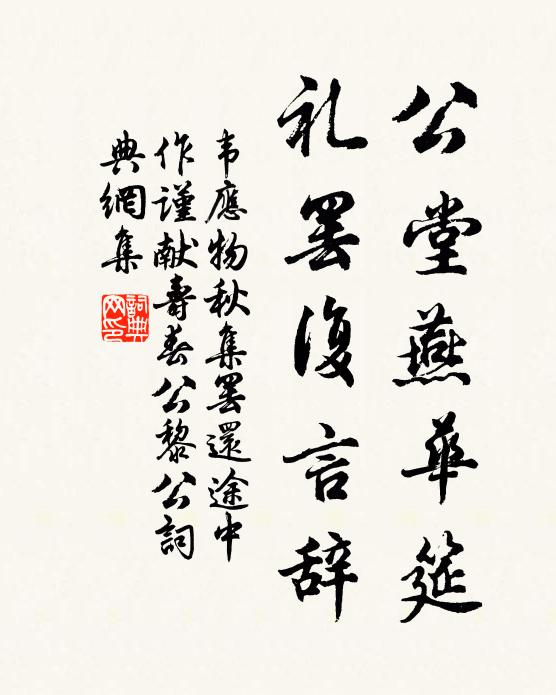 公堂燕華筵
礼罢復言辞
韦應物秋集罢還途中
作謹献壽春公黎公詞
典網集
詞典網印